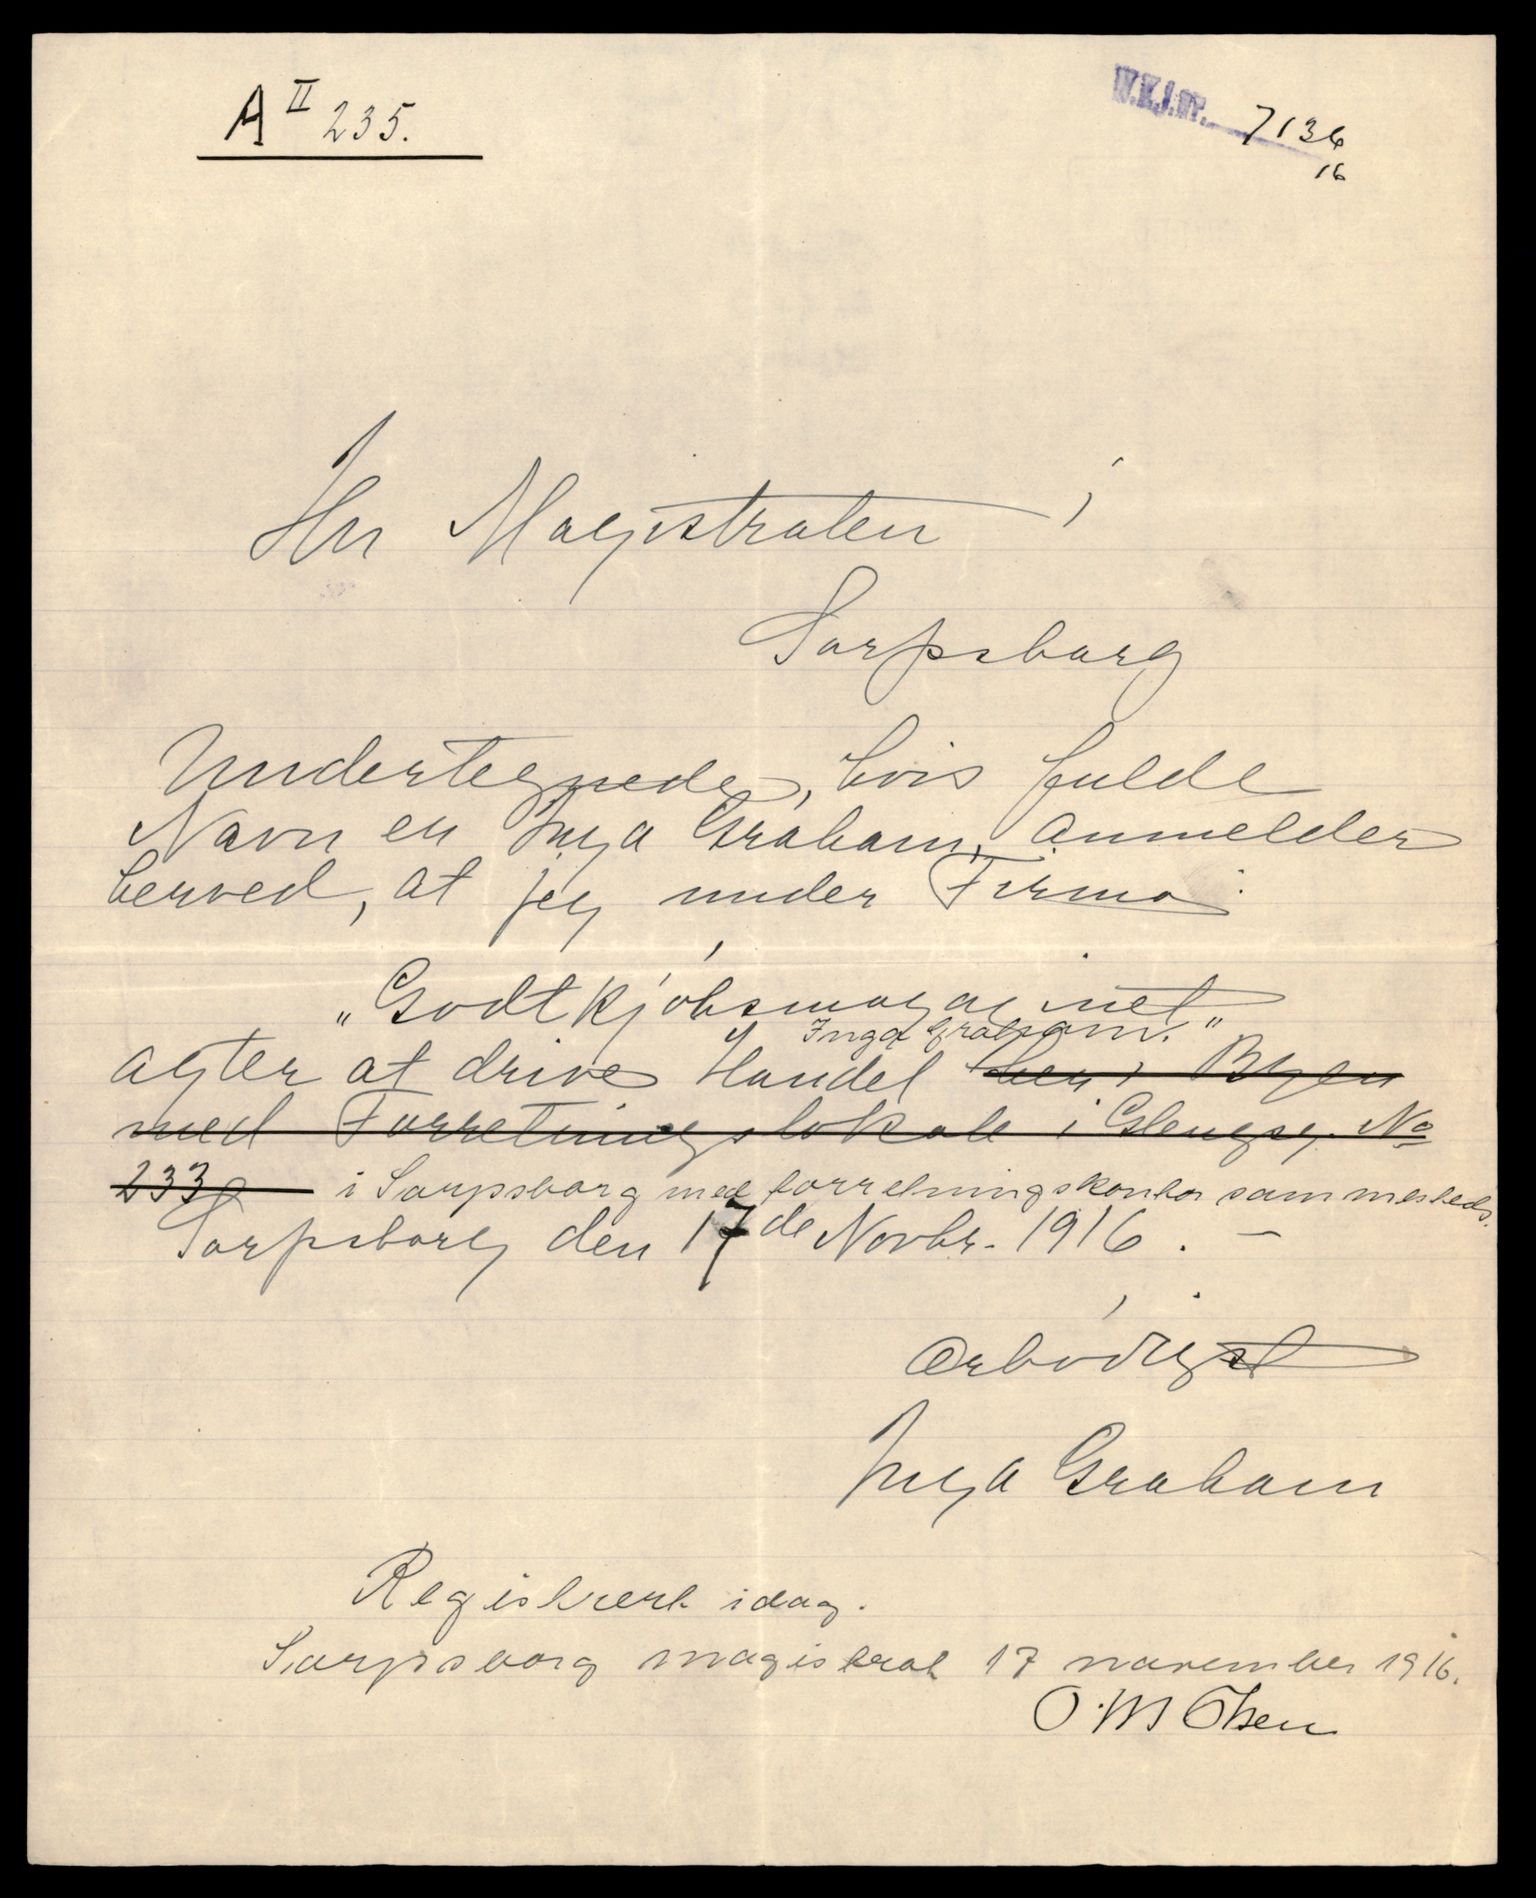 A II 235.
W.K.J.nr. 7136
16
Hr Magistraten i
Sarpsborg
Undertegnede, hvis fulde
Navn er Inga Graham, anmelder
herved, at jeg under Firma:
„Godtkjöbsmagaginet
Inga Graham."
agter at drive Handel her i Byen
med Forretningslokale i Glengsg. No
233 i Sarpsborg med forretningskontor sammesteds.
Sarpsborg den 17de Novbr. 1916. —
Ærbödigst
Inga Graham
Registrert idag.
Sarpsborg magistrat 17 november 1916.
O. M Olsen